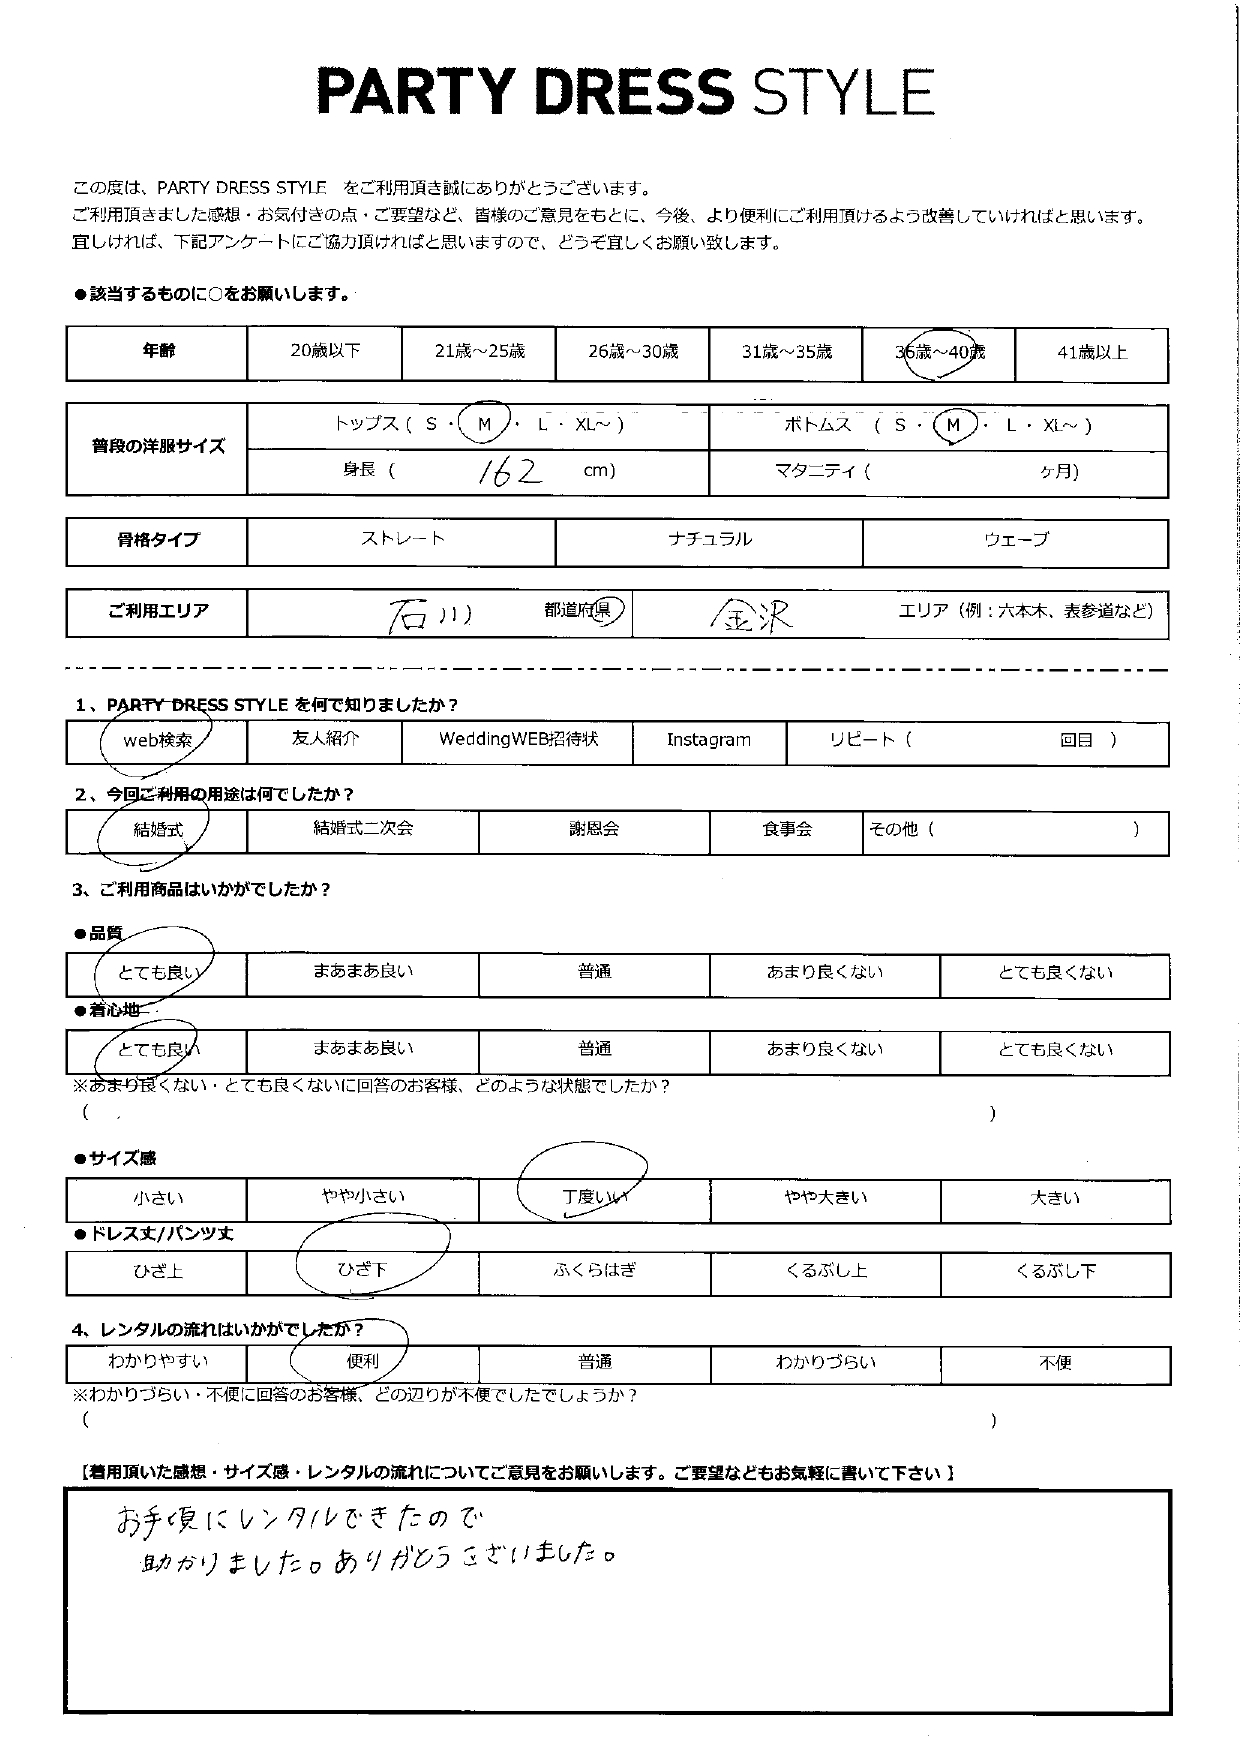 PARTY DRESS STYLE
この度は、PARTY DRESS STYLE をご利用頂き誠にありがとうございます。
ご利用頂きました感想・お気付きの点・ご要望など、皆様のご意見をもとに、今後、より便利にご利用頂けるよう改善していければと思います。
宜しければ、下記アンケートにご協力頂ければと思いますので、どうぞ宜しくお願い致します。
●該当するものに○をお願いします。
年齢 20歳以下 21歳～25歳 26歳～30歳 31歳～35歳 36歳～40歳 41歳以上
普段の洋服サイズ トップス ( S ・ M ・ L ・ XL～ ) ボトムス ( S ・ M ・ L ・ XL～ )
身長 ( 162 cm) マタニティ ( ヶ月)
骨格タイプ ストレート ナチュラル ウェーブ
ご利用エリア 石川 都道府県 金沢 エリア（例：六本木、表参道など）
1、PARTY DRESS STYLE を何で知りましたか？
web検索 友人紹介 WeddingWEB招待状 Instagram リピート ( 回目 )
2、今回ご利用の用途は何でしたか？
結婚式 結婚式二次会 謝恩会 食事会 その他 ( )
3、ご利用商品はいかがでしたか？
●品質
とても良い まあまあ良い 普通 あまり良くない とても良くない
●着心地
とても良い まあまあ良い 普通 あまり良くない とても良くない
※あまり良くない・とても良くないに回答のお客様、どのような状態でしたか？
( )
●サイズ感
小さい やや小さい 丁度いい やや大きい 大きい
●ドレス丈/パンツ丈
ひざ上 ひざ下 ふくらはぎ くるぶし上 くるぶし下
4、レンタルの流れはいかがでしたか？
わかりやすい 便利 普通 わかりづらい 不便
※わかりづらい・不便に回答のお客様、どの辺りが不便でしたでしょうか？
( )
【着用頂いた感想・サイズ感・レンタルの流れについてご意見をお願いします。ご要望などもお気軽に書いて下さい】
お手便にレンタルできたので
助かりました。ありがとうございました。